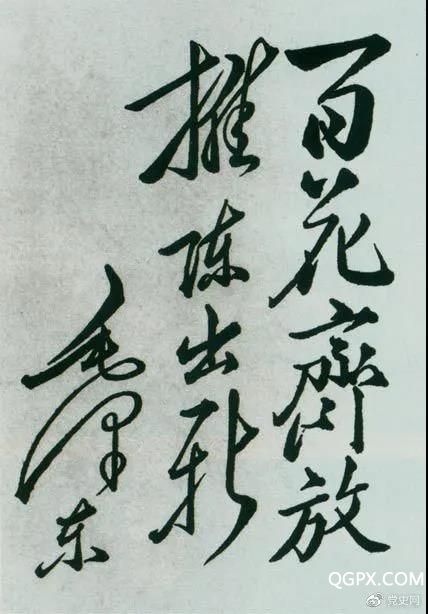 百花齊放
推陈出新
毛泽东
QGPX.COM
党史网